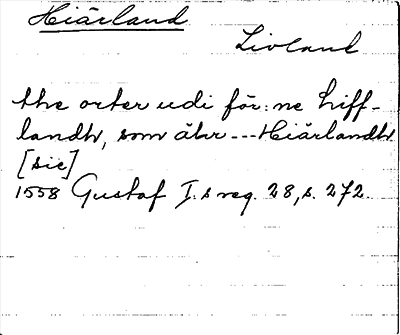 Hiärland
Livland
the orter udi för:ne Liff-
landh, som ähr --- Hiärlandh
[sic]
1558 Gustaf I.s reg. 28, s. 272.